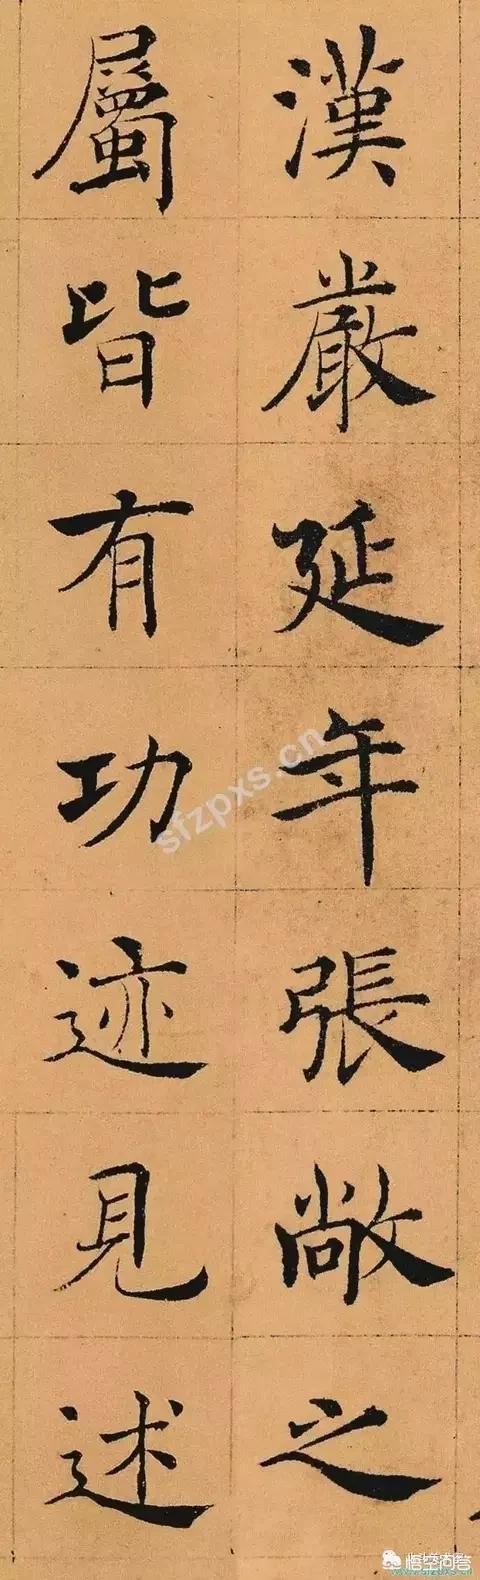 漢嚴延年張敞之
屬皆有功迹見述
sfzpxs.cn
悟空问答
www.sfzpxs.cn